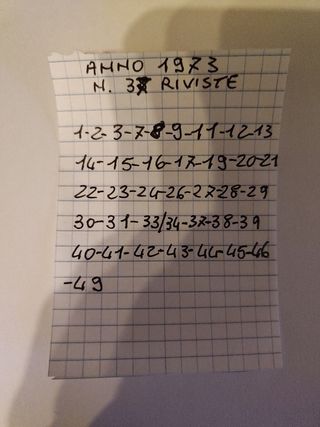 ANNO 1973
N. 38 RIVISTE
1-2-3-7-8-9-11-12-13
14-15-16-17-19-20-21
22-23-24-26-27-28-29
30-31-33/34-37-38-39
40-41-42-43-44-45-46
-49